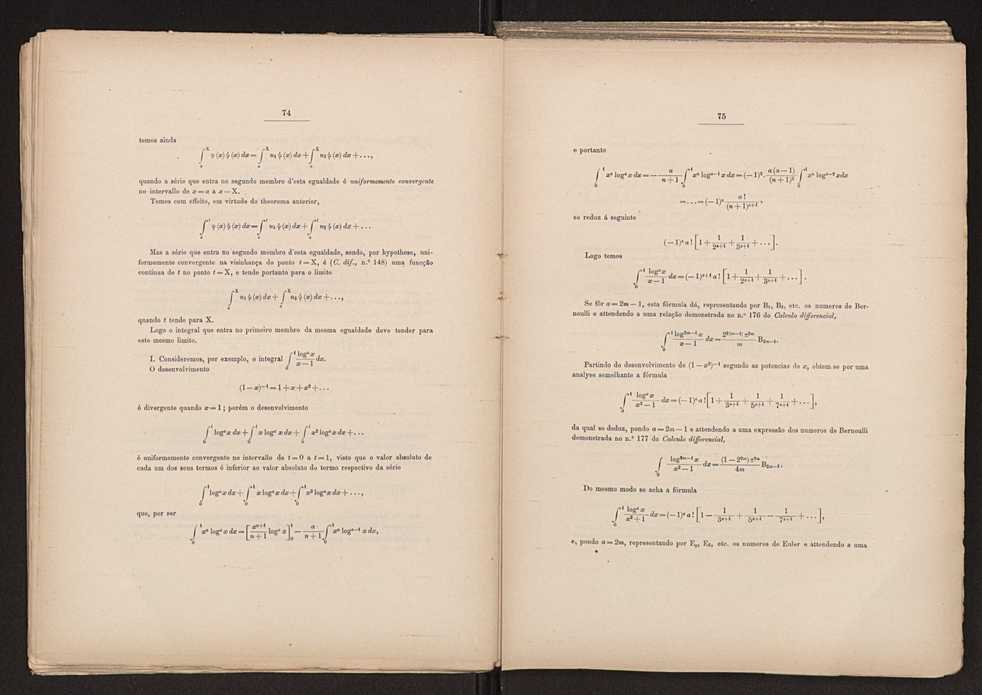 74
temos ainda
∫ₐ^X ψ (x) ψ (x) dx = ∫ₐ^X u₁ ψ (x) dx + ∫ₐ^X u₂ ψ (x) dx + . . . ,
quando a série que entra no segundo membro d'esta egualdade é uniformemente convergente
no intervallo de x = a a x = X.
Temos com effeito, em virtude do theorema anterior,
∫ₐ^t ψ (x) ψ (x) dx = ∫ₐ^t u₁ ψ (x) dx + ∫ₐ^t u₂ ψ (x) dx + . . .
Mas a série que entra no segundo membro d'esta egualdade, sendo, por hypothese, uni-
formemente convergente na visinhança do ponto t = X, é (C. dif., n.º 148) uma funcção
continua de t no ponto t = X, e tende portanto para o limite
∫ₐ^X u₁ ψ (x) dx + ∫ₐ^X u₂ ψ (x) dx + . . . ,
quando t tende para X.
Logo o integral que entra no primeiro membro da mesma egualdade deve tender para
este mesmo limite.
I. Consideremos, por exemplo, o integral ∫₀^1 logᵃ x / (x − 1) dx.
O desenvolvimento
(1 − x)⁻¹ = 1 + x + x² + . . .
é divergente quando x = 1; porém o desenvolvimento
∫₀^t logᵃ x dx + ∫₀^t x logᵃ x dx + ∫₀^t x² logᵃ x dx + . . .
é uniformemente convergente no intervallo de t = 0 a t = 1, visto que o valor absoluto de
cada um dos seus termos é inferior ao valor absoluto do termo respectivo da série
∫₀^1 logᵃ x dx + ∫₀^1 x logᵃ x dx + ∫₀^1 x² logᵃ x dx + . . . ,
que, por ser
∫₀^1 xⁿ logᵃ x dx = [xⁿ⁺¹ / (n + 1) logᵃ x]₀^1 − a / (n + 1) ∫₀^1 xⁿ logᵃ⁻¹ x dx,
75
e portanto
∫₀^1 xⁿ logᵃ x dx = − a / (n + 1) ∫₀^1 xⁿ logᵃ⁻¹ x dx = (−1)² a (a − 1) / (n + 1)² ∫₀^1 xⁿ logᵃ⁻² x dx
= . . . = (−1)ᵃ a ! / (n + 1)ᵃ⁺¹ ,
se reduz á seguinte
(−1)ᵃ a ! [1 + 1 / 2ᵃ⁺¹ + 1 / 3ᵃ⁺¹ + . . .].
Logo temos
∫₀^1 logᵃ x / (x − 1) dx = (−1)ᵃ⁺¹ a ! [1 + 1 / 2ᵃ⁺¹ + 1 / 3ᵃ⁺¹ + . . .].
Se fôr a = 2m − 1, esta fórmula dá, representando por B₁, B₃, etc. os numeros de Ber-
noulli e attendendo a uma relação demonstrada no n.º 176 do Calculo differencial,
∫₀^1 log²ᵐ⁻¹ x / (x − 1) dx = 2²⁽ᵐ⁻¹⁾ π²ᵐ / m B₂ₘ₋₁.
Partindo do desenvolvimento de (1 − x²)⁻¹ segundo as potencias de x, obtem-se por uma
analyse semelhante a fórmula
∫₀^1 logᵃ x / (x² − 1) dx = (−1)ᵃ a ! [1 + 1 / 3ᵃ⁺¹ + 1 / 5ᵃ⁺¹ + 1 / 7ᵃ⁺¹ + . . .],
da qual se deduz, pondo a = 2m − 1 e attendendo a uma expressão dos numeros de Bernoulli
demonstrada no n.º 177 do Calculo differencial,
∫₀ log²ᵐ⁻¹ x / (x² − 1) dx = (1 − 2²ᵐ) π²ᵐ / 4m B₂ₘ₋₁.
Do mesmo modo se acha a fórmula
∫₀^1 logᵃ x / (x² + 1) dx = (−1)ᵃ a ! [1 − 1 / 3ᵃ⁺¹ + 1 / 5ᵃ⁺¹ − 1 / 7ᵃ⁺¹ + . . .],
e, pondo a = 2m, representando por E₀, E₂, etc. os numeros de Euler e attendendo a uma
*